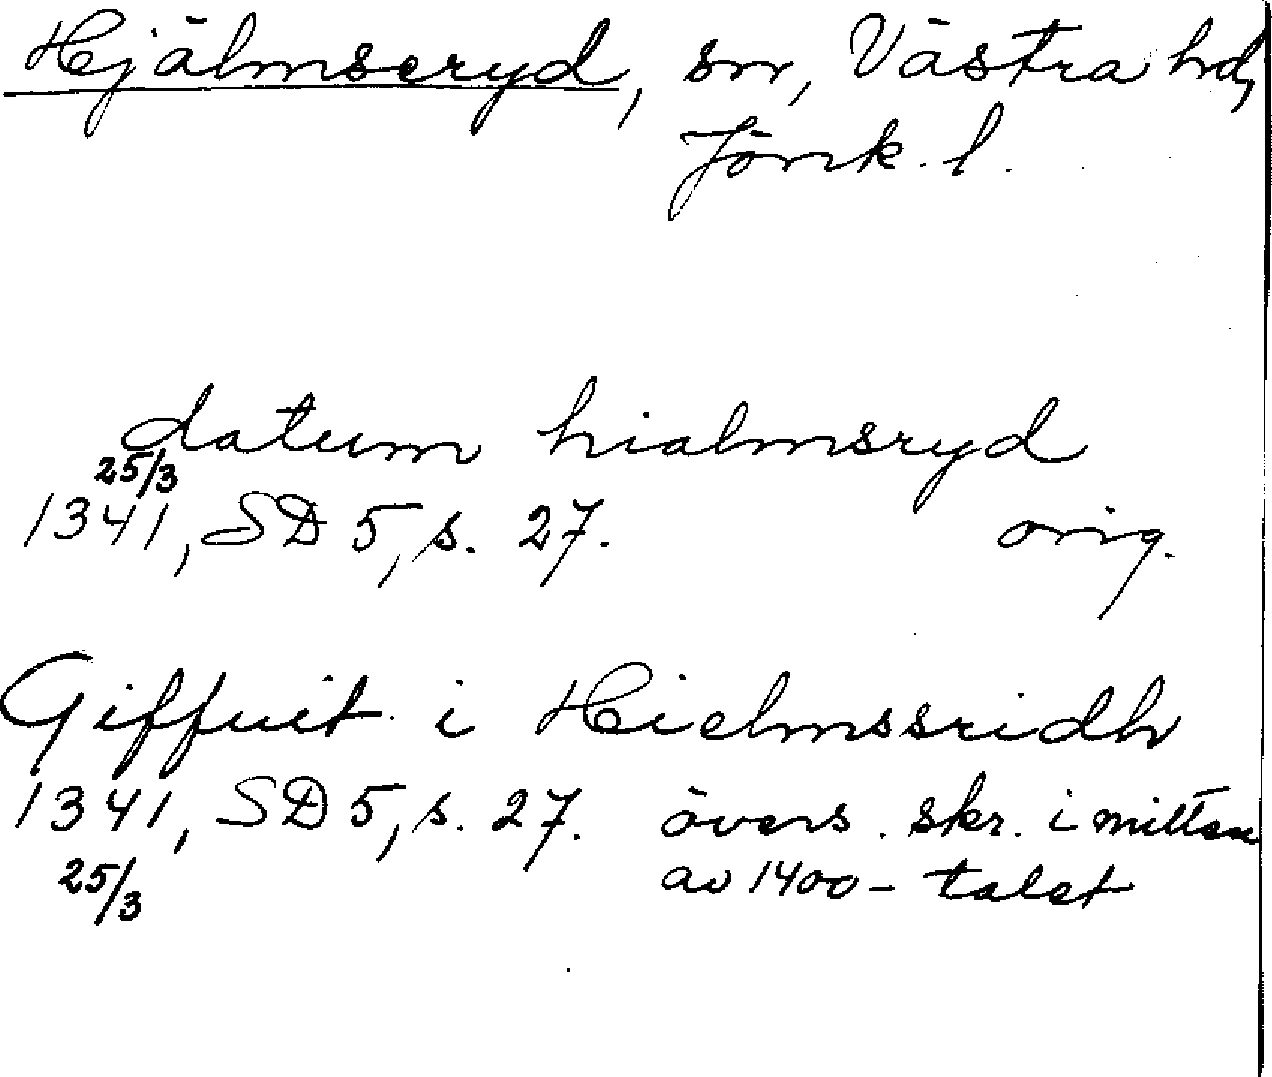 Hjälmseryd, sn, Västra hd,
Jönk. l.
datum hialmsryd
25/3
1341, SD 5, s. 27. orig.
Giffuit i Hielmssridh
1341, SD 5, s. 27. övers. skr. i mitten
25/3 av 1400-talet